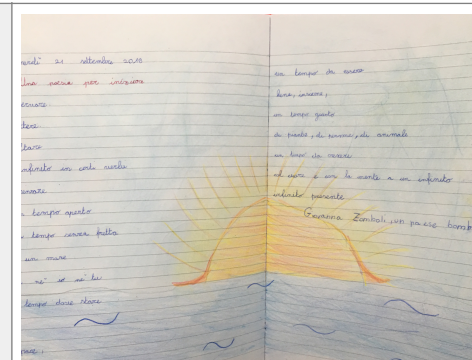 21 settembre 2018
Una poesia per iniziare
tempo aperto
tempo senza fretta
un mare
né io né tu
tempo dove stare
un tempo da vivere
bene, insieme,
un tempo giusto
di piante, di uomini, di animali
un tempo da vivere
col cuore e con la mente a un infinito
infinito presente
Giovanna Zoboli, un paese bamb